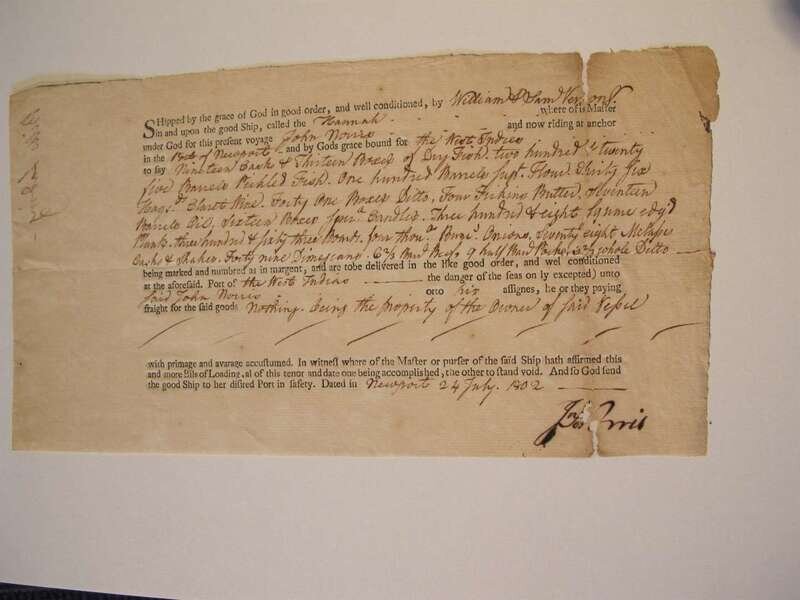 SHipped by the grace of God in good order, and well conditioned, by William & Sam.l Vernon
in and upon the good Ship, called the Hannah where of is Master
under God for this present voyage John Norris and now riding at anchor
in the Port of Newport and by Gods grace bound for the West Indies
to say Nineteen Cask & Thirteen Boxes of Dry Fish. two hundred & twenty
five Barrels Pickled Fish. One hundred Barrels Flour. Thirty Six
Hogs.d Claret Wine. Forty One Boxes Ditto, Four Firkins Butter, Seventeen
Barrels Oil, Sixteen Boxes Candles. Three hundred & eight Square edg'd
Plank. three hundred & sixty three Boards. four thou.d Onions. Seventy eight Molasses
Cask & Shakes. Forty nine 9 half whole Ditto
being marked and numbred as in margent, and are tobe delivered in the like good order, and wel conditioned
at the aforesaid. Port of the West Indies the danger of the seas on ly excepted) unto
said John Norris orto his assignes, he or they paying
fraight for the said goods Nothing. being the property of the Owner of said Vessel
with primage and avarage accustumed. In witness where of the Master or purser of the said Ship hath affirmed this
and more Bils of Loading, al of this tenor and date one being accomplished, the other to stand void. And so God send
the good Ship to her disired Port in safety. Dated in Newport 24 July. 1802
Jno Norris